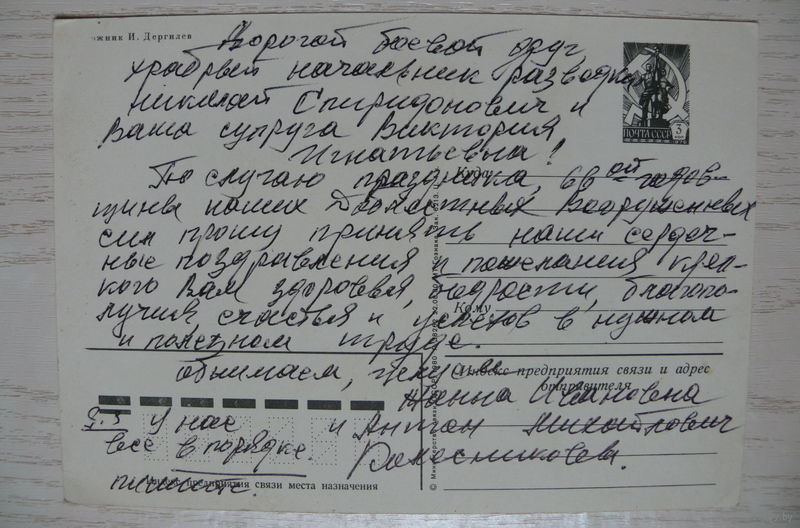 жник И. Дергилев
Дорогой боевой друг
храбрый начальник разведки
Николай Спиридонович и
Ваша супруга Виктория
Игнатьевна!
ПОЧТА СССР
3
коп
1976
Куда
По случаю праздника, 66ой годов-
щины наших Доблестных Вооруженных
сил прошу принять наши сердеч-
ные поздравления и пожелания креп-
кого Вам здоровья, бодрости, благопо-
Кому
лучия, счастья и успехов в нужном
и полезном труде.
Индекс предприятия связи и адрес
отправителя
обнимаем, целуем
Жанна Ивановна
P.S У нас и Антон Михайлович
все в порядке.
пишите.
Индекс предприятия связи места назначения